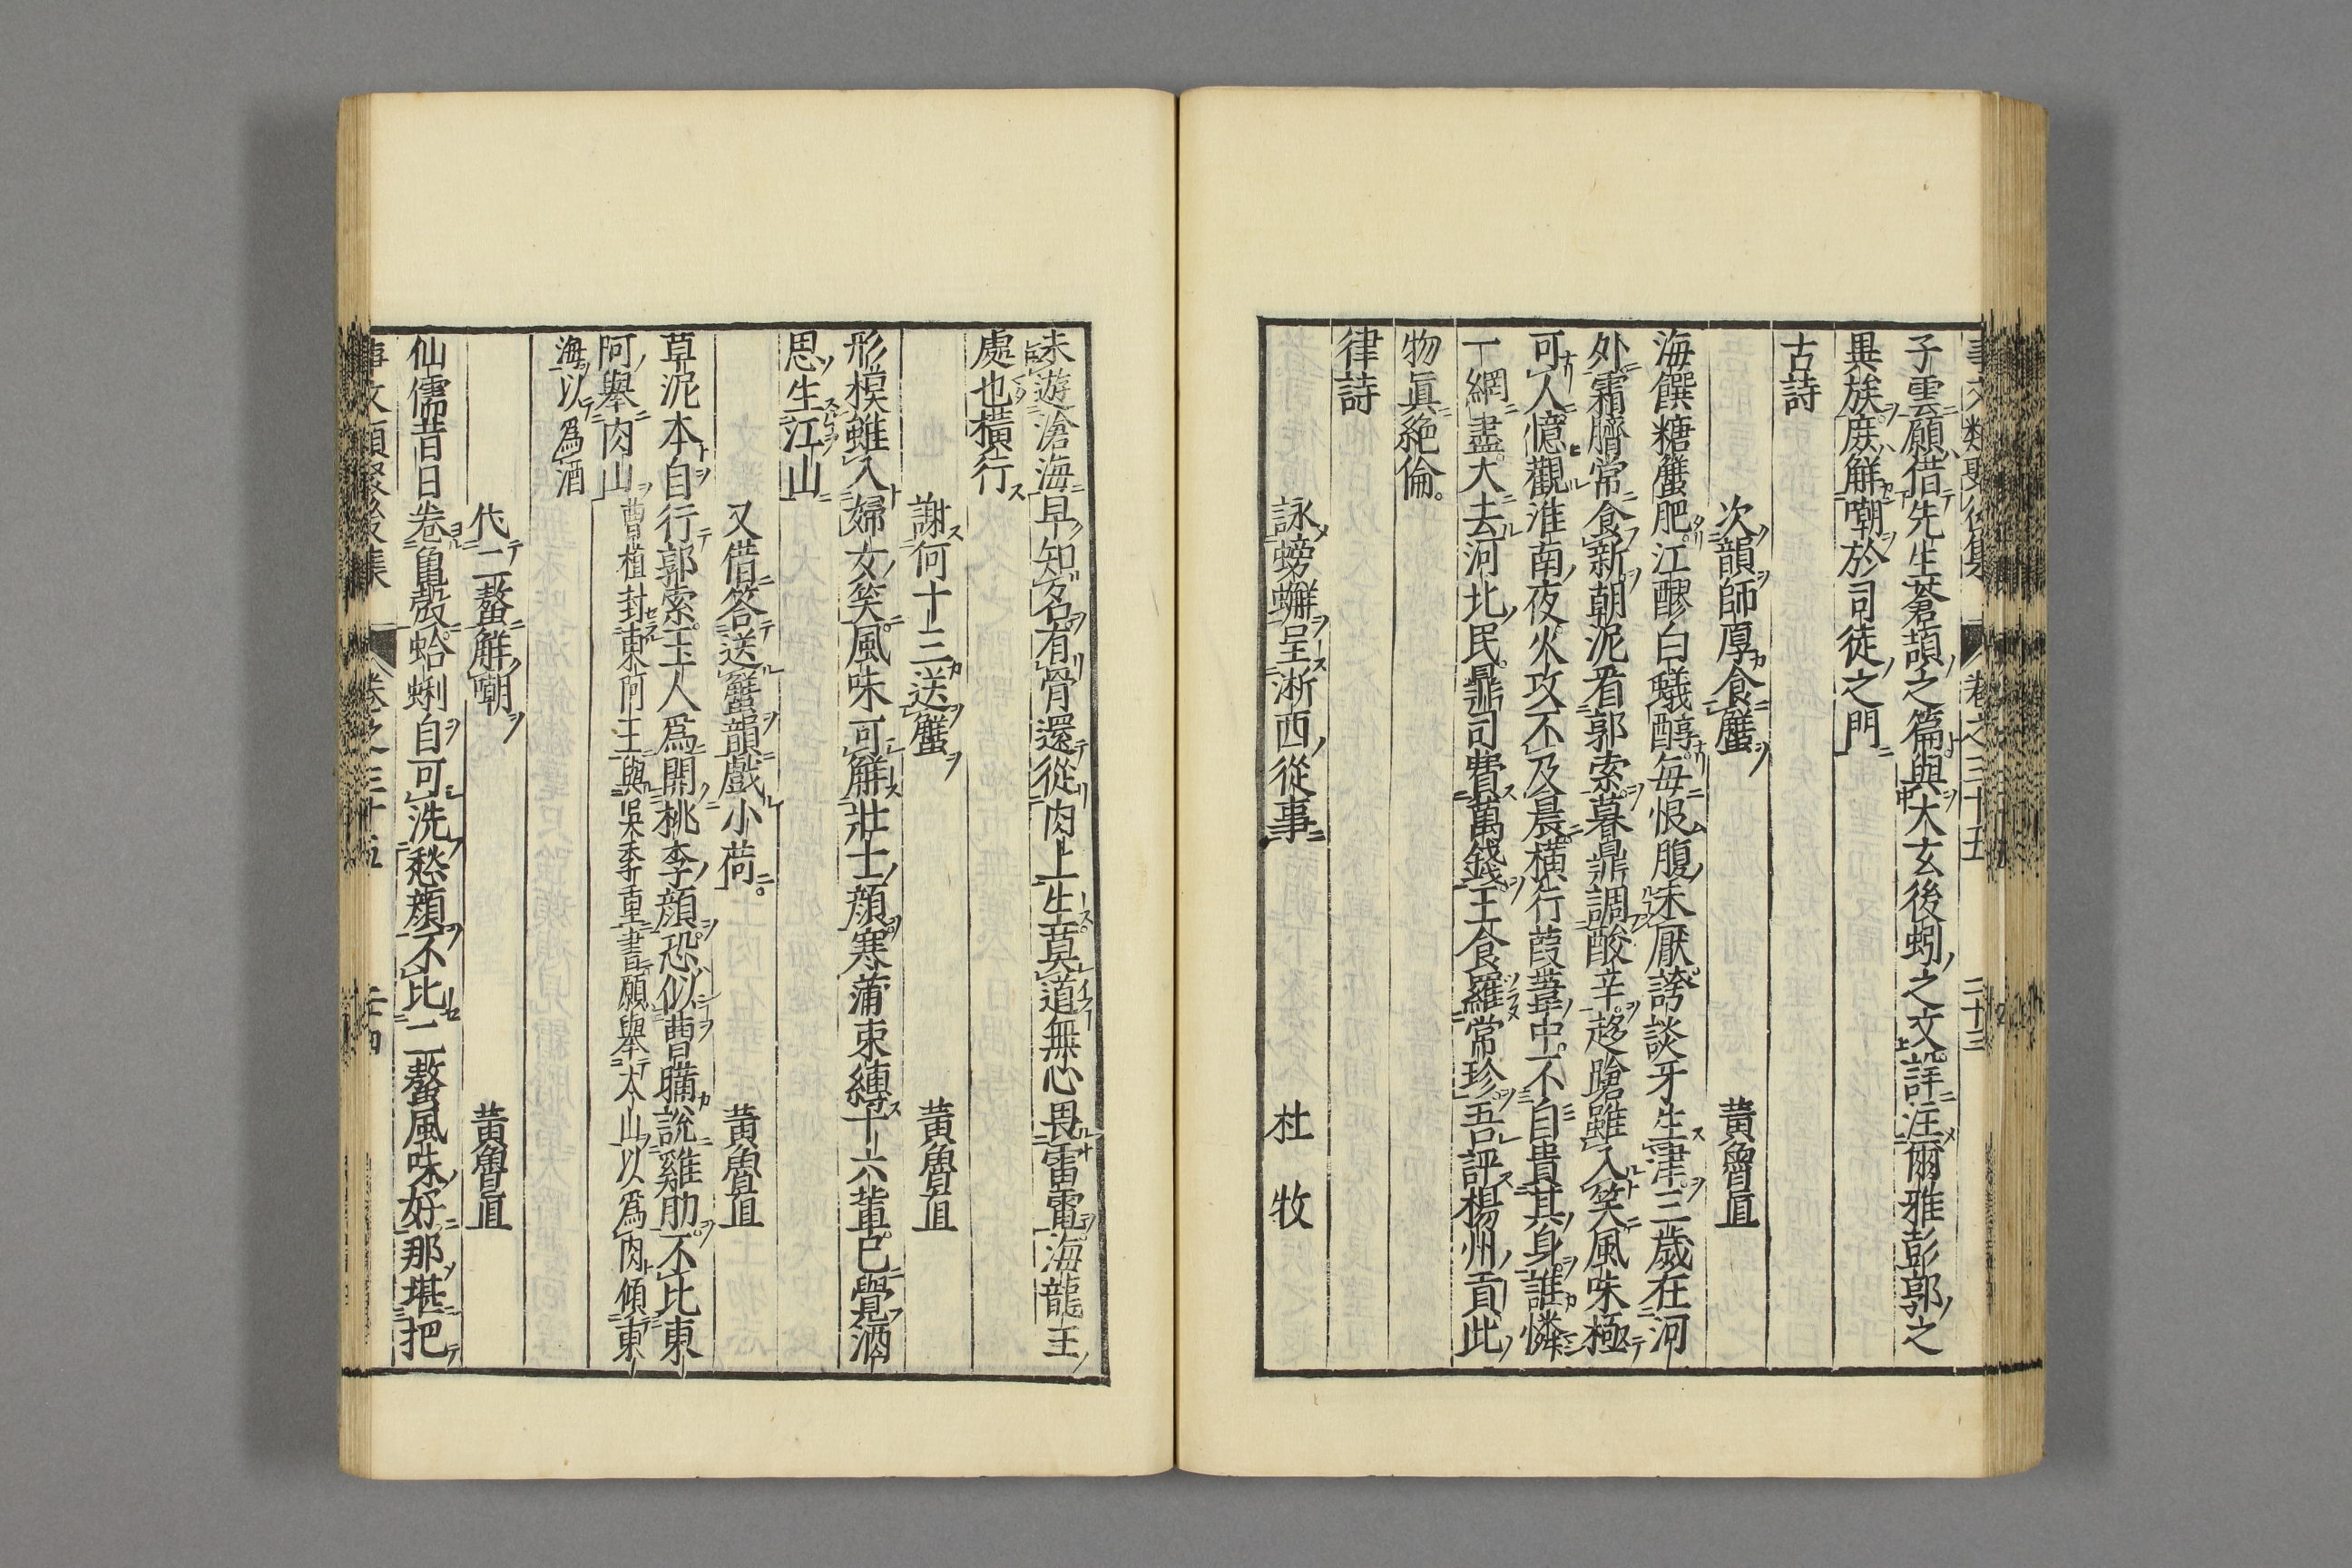 事文類聚後集 卷之三十五 二十三
子雲願借先生蒼頡之篇與大玄後蚓之文詳注爾雅彭郭之
異族庶解嘲於司徒之門
古詩
次韻師厚食蟹 黃魯直
海饌糖蟹肥江醪白蟻醇每恨腹未厭誇談牙生津三歲在河
外霜臍常食新朝泥看郭索暮鼎調酸辛趍蹌雖入笑風味極
可人憶觀淮南夜火攻不及晨橫行葭葦中不自貴其身誰憐
一網盡大去河北民鼎司費萬錢玉食羅常珍吾評楊州貢此
物眞絕倫
律詩
詠螃蠏呈淅西從事 杜牧
未遊滄海早知名有骨還從肉上生莫道無心畏雷電海龍王
處也橫行
謝何十三送蟹 黃魯直
形模雖入婦女笑風味可解壯士顏寒蒲束縛十六輩已覺酒
思生江山
又借答送蟹韻戲小荷 黃魯直
草泥本自行郭索玉人爲開桃李顏恐似曹臑說雞肋不比東
阿舉肉山 曹植封東阿王與吳季重書願舉太山以爲肉傾東
海以爲酒
代二螯解嘲 黃魯直
仙儒昔日卷龜殼蛤蜊自可洗愁顏不比二螯風味好那堪把
事文類聚後集 卷之三十五 二十四